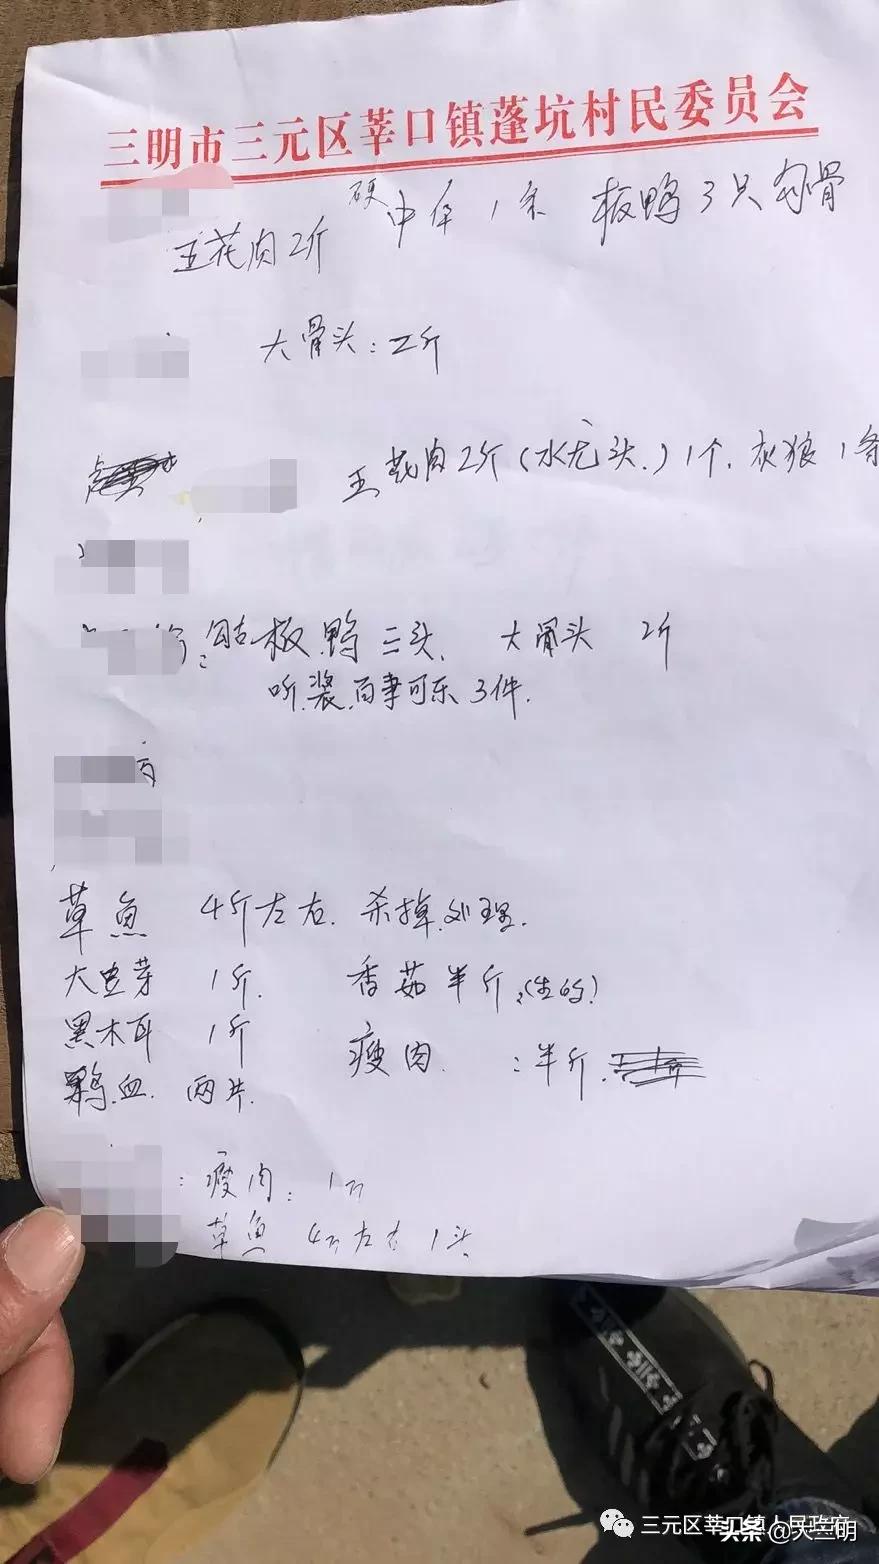 三明市三元区莘口镇蓬坑村民委员会
硬中华1条 板鸭3只 勾骨
五花肉2斤
大骨头:二斤
五花肉2斤(水龙头.)1个.灰狼1条
板鸭三头. 大骨头 2斤
听装.百事可乐3件.
草鱼 4斤左右.杀掉.处理.
大豆芽 1斤. 香茹半斤.(生的)
黑木耳 1斤
瘦肉.:半斤.
鸭血.两片.
:瘦肉:1斤
草鱼 4斤左右1头
三元区莘口镇人民政府
头条@大三明